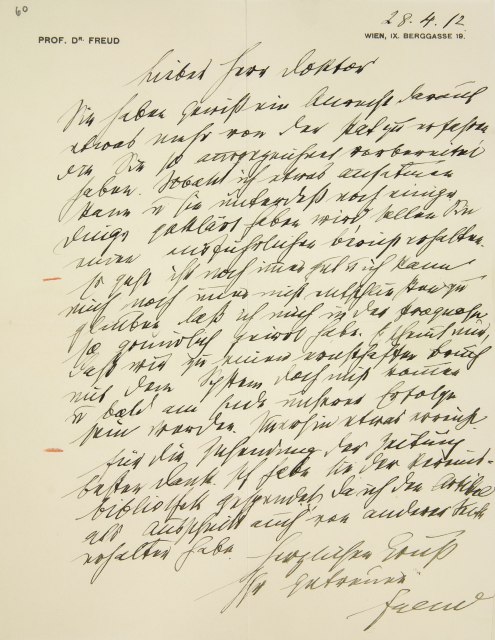 60
28.4.12
PROF. DR. FREUD
WIEN, IX. BERGGASSE 19.
Lieber Herr Doktor
Sie haben gewiß ein Anrecht darauf
etwas mehr von der zu erfahren
die Sie so vorbereitet
haben. Sobald ich etwas
kann u Sie unterdeß noch einige
Dinge geklärt haben wird, sollen Sie
einen ausführlichen Bericht erhalten.
geht ich kann
mich noch immer nicht
glauben, daß ich mich in der Prognose
so gründlich geirrt habe.
daß wir zu einem ernsthaften
mit dem System doch nicht kommen
u bald am Ende unserer Erfolge
sein werden. Immerhin etwas erreicht
Für die Zusendung der Zeitung
besten Dank. Ich habe sie der Vereins-
bibliothek gespendet, da ich den Artikel
als Ausschnitt auch von anderer Seite
erhalten habe.
Herzlichen Gruß
Ihr getreuer
Freud